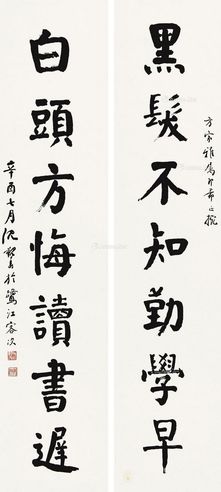 黑髮不知勤學早
方家雅屬即希正腕
白頭方悔讀書遲
辛酉七月沉
於鷺江客次